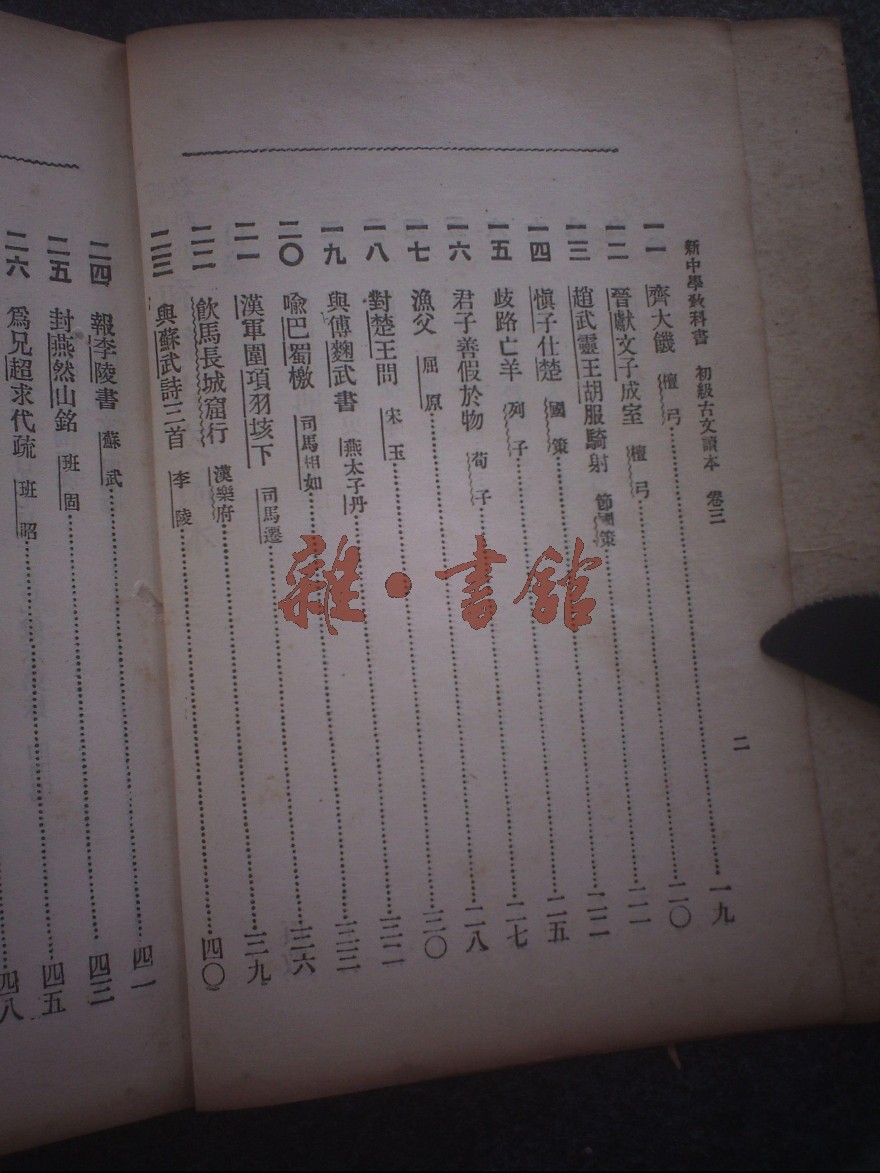 新中學教科書 初級古文讀本 卷三
二
一一 齊大饑 檀弓 一九
一二 晉獻文子成室 檀弓 二〇
一三 趙武靈王胡服騎射 節國策 二一
一四 愼子仕楚 國策 二二
一五 歧路亡羊 列子 二五
一六 君子善假於物 荀子 二七
一七 漁父 屈原 二八
一八 對楚王問 宋玉 三〇
一九 與傅麴武書 燕太子丹 三二
二〇 喩巴蜀檄 司馬相如 三三
二一 漢軍圍項羽垓下 司馬遷 三六
二二 飮馬長城窟行 漢樂府 三九
二三 與蘇武詩三首 李陵 四〇
二四 報李陵書 蘇武 四一
二五 封燕然山銘 班固 四三
二六 爲兄超求代疏 班昭 四五
四八
雜·書館